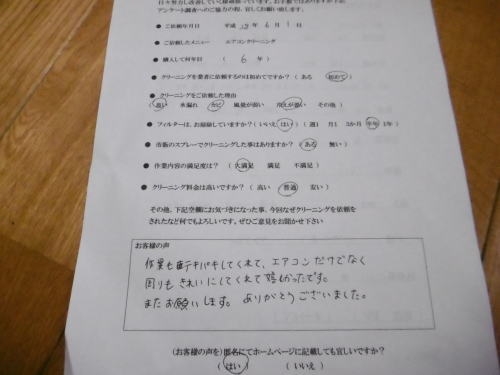 日々努力し改善していく様頑張っています。お手数ではありますが下記
アンケート調査へのご協力の程、宜しくお願い致します。
● ご依頼年月日 平成 29年 6月 1日
● ご依頼したメニュー エアコンクリーニング
● 購入して何年目 ( 6 年)
● クリーニングを業者に依頼するのは初めてですか？ (ある 初めて)
● クリーニングをご依頼した理由
(臭い 水漏れ カビ 風量が弱い 冷えが弱い その他)
● フィルターは、お掃除していますか？(いいえ はい) (週1 月1 3か月 半年 1年)
● 市販のスプレーでクリーニングした事はありますか？ (ある 無い)
● 作業内容の満足度は？ (大満足 満足 不満足)
● クリーニング料金は高いですか？ (高い 普通 安い)
その他、下記空欄にお気づきになった事、今回なぜクリーニングを依頼を
されたなど何でもよろしいです。ぜひご意見をお聞かせ下さい
お客様の声
作業もテキパキしてくれて、エアコンだけでなく
周りもきれいにしてくれて嬉しかったです。
またお願いします。ありがとうございました。
(お客様の声)匿名にてホームページに記載しても宜しいですか？
(はい) (いいえ)